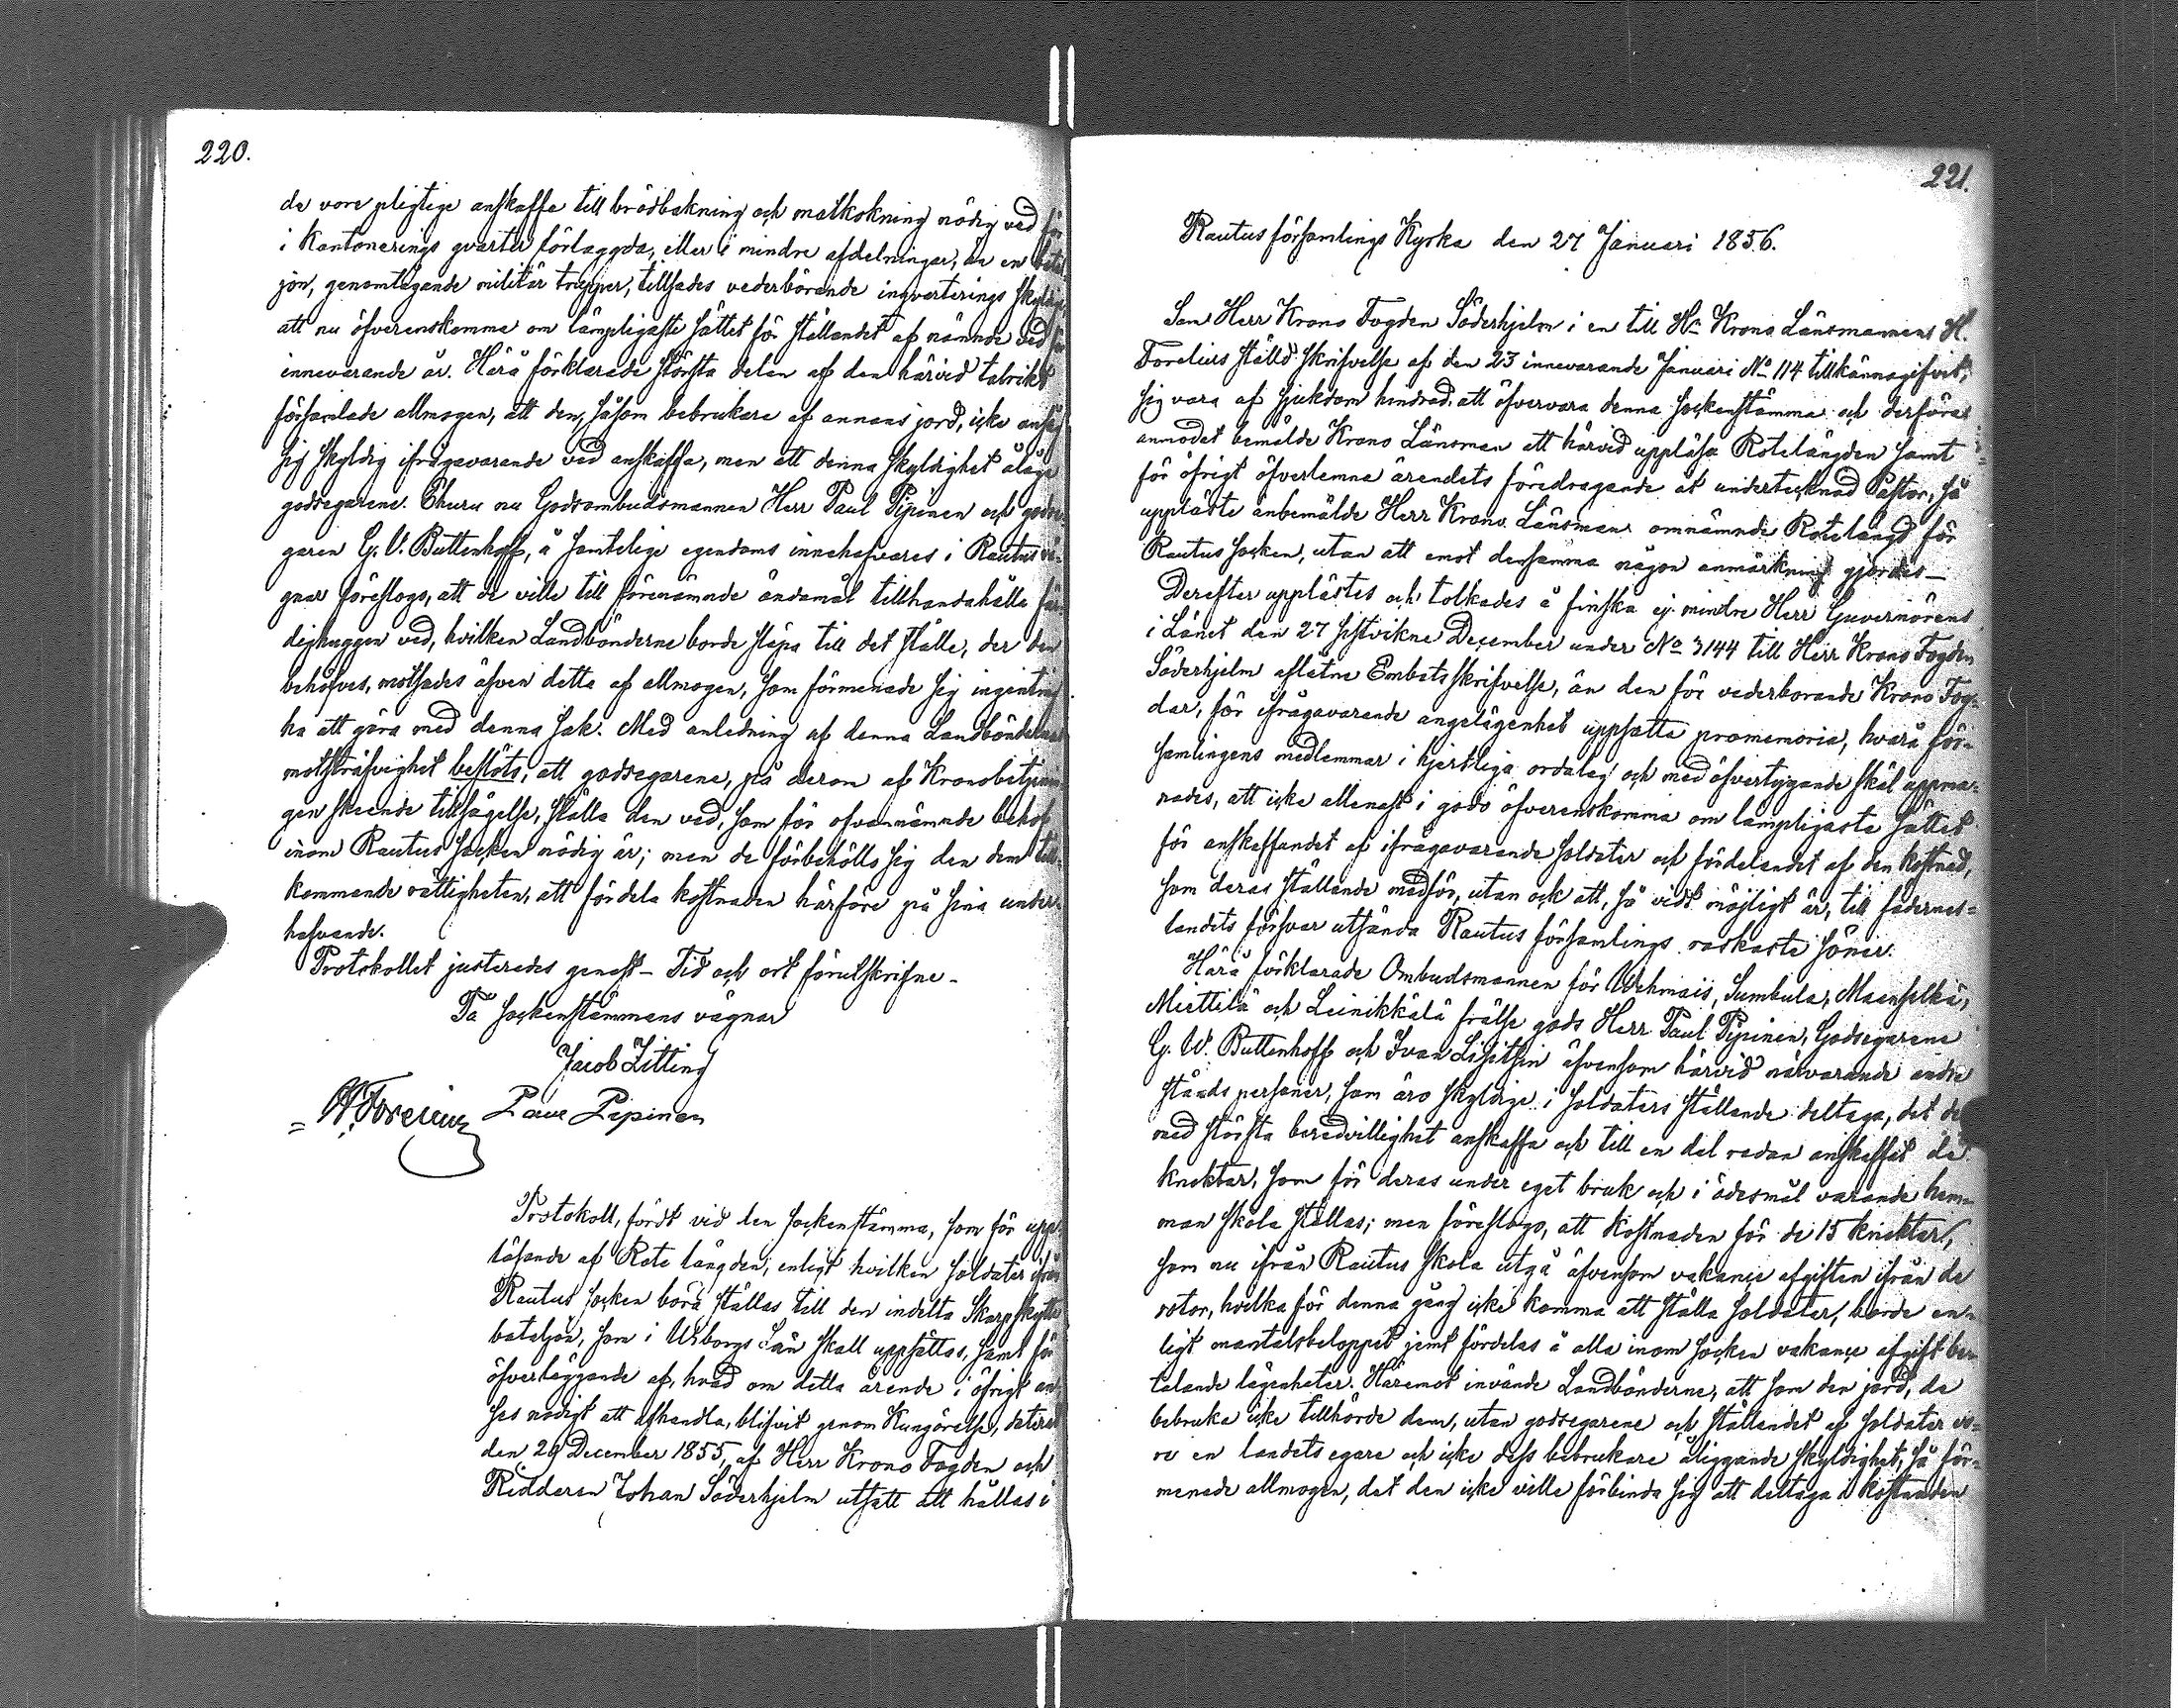 220.
de vore pligtige anskaffa till brödbakning och matkokning nödig ved för
i Kantonerings qvarter förlaggda, eller i mindre afdelningar, än en batal
jon, genomtågande militär trupper, tillsades vederbörande inqvarterings skyldige
att nu öfverenskomma om lämpligaste sättet för ställandet af nämnde ved för
innevarande år. Härå förklarade största delen af den härvid talrikt
församlade allmogen, att den, såsom bebrukare af annans jord, icke ansåg
sig skyldig ifrågavarande ved anskaffa, men att denna skyldighet åläge
godsegarene. Ehuru nu Godsombudsmannen Herr Paul Pipinen och godse
garen G. V. Buttenhoff, å samtelige egendoms innehafvares i Rautus vä-
gnar föreslogo, att de ville till förenämnde ändamål tillhandahålla fär
dighuggen ved, hvilken Landbönderne borde släpa till det ställe, der den
behöfves, motsades äfven detta af allmogen, som förmenade sig ingenting
ha att göra med denna sak. Med anledning af denna Landböndernas
motsträfvighet beslöts, att godsegarene, på derom af Kronobetjenin
gen skeende tillsägelse, ställa den ved, som för ofvannämnde behof
inom Rautus socken nödig är; men de förbehöllo sig den dem till-
kommande rättigheten, att fördela kostnaden härföre på sina under-
hafvande.
Protokollet justerades genast – Tid och ort förutskrifne –
På sockenstämmans vägnar
Jacob Zitting
H. Forelius Paul Pipinen
Protokoll, fördt vid den sockenstämma, som för upp-
läsande af Rote längden, enligt hvilken soldater ifrån
Rautus socken böra ställas till den indelta Skarpskytte
bataljon, som i Wiborgs Län skall uppsättas, samt för
öfverläggande af, hvad om detta ärende i öfrigt an
ses nödigt att afhandla, blifvit genom Kungörelse, daterad
den 29 December 1855, af Herr Krono Fogden och
Riddaren Johan Söderhjelm utsatt att hållas i
221.
Rautus församlings Kyrka den 27 Januari 1856.
Sen Herr Krono Fogden Söderhjelm i en till Hr Krono Länsmannen H.
Forelius ställd skrifvelse af den 23 innevarande Januari No 114 tillkännagifvit,
sig vara af sjukdom hindrad att öfvervara denna sockenstämma och derföre
anmodat bemälde Krono Länsman att härvid uppläsa Rotelängden samt
för öfrigt öfverlemna ärendets föredragande åt undertecknad Pastor, så
uppläste änbemälde Herr Krono Länsman omnämnde Rotelängd för
Rautus socken, utan att emot densamma någon anmärkning gjordes –
Derefter upplästes och tolkades å finska ej mindre Herr Guvernörens
i Länet den 27 sistvikne December under No 3144 till Herr Krono Fogden
Söderhjelm aflåtne Embetsskrifvelse, än den för vederborande Krono Fog-
dar, för ifrågavarande angelägenhet uppsatta promemoria, hvarå för-
samlingens medlemmar i hjertliga ordalag och med öfvertygande skäl uppma-
nades, att icke allenast i godo öfverenskomma om lämpligaste sättet
för anskaffandet af ifrågavarande soldater och fördelandet af den kostnad,
som deras ställande medför, utan ock att, så vidt möjligt är, till fädernes=
landets försvar utsända Rautus församlings raskaste söner.
Härå förklarade Ombudsmannen för Wehmais, Sumbula, Maanselkä,
Miettilä och Leinikkälä frälse gods Herr Paul Pipinen, Godsegarene
G. W. Buttenhoff och Ivan Lisitsin äfvensom härvid närvarande andre
stånds personer, som äro skyldige i soldaters ställande deltaga, det de
med största beredvillighet anskaffa och till en del redan anskaffat de
knektar, som för deras under eget bruk och i ödesmål varande hem-
man skola ställas; men föreslogo, att kostnaden för de 15 knektar,
som nu ifrån Rautus skola utgå äfvensom vakance afgiften ifrån de
rotor, hvilka för denna gång icke komma att ställa soldater, borde en-
ligt mantalsbeloppet jemt fördelas å alla inom socken vakance afgift be-
talande lägenheter. Häremot invände Landbönderne, att som den jord, de
bebruka icke tillhörde dem, utan godsegarene och ställandet af soldater vo-
re en landets egare och icke dess bebrukare åliggande skyldighet, så för-
menade allmogen, det den icke ville förbinda sig att deltaga i kostnaden